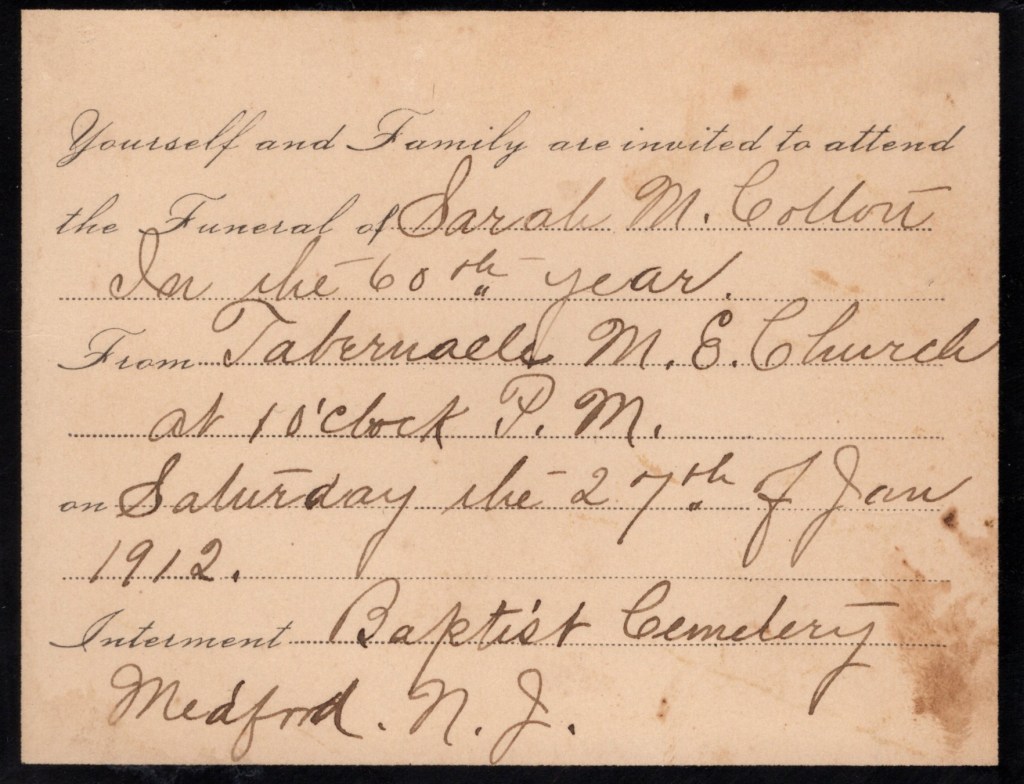 Yourself and Family are invited to attend
the Funeral of Sarah M. Cotton
In the 60th year.
From Tabernacle M. E. Church
at 1 O'clock P. M.
on Saturday the 27th of Jan
1912.
Interment Baptist Cemetery
Medford. N. J.